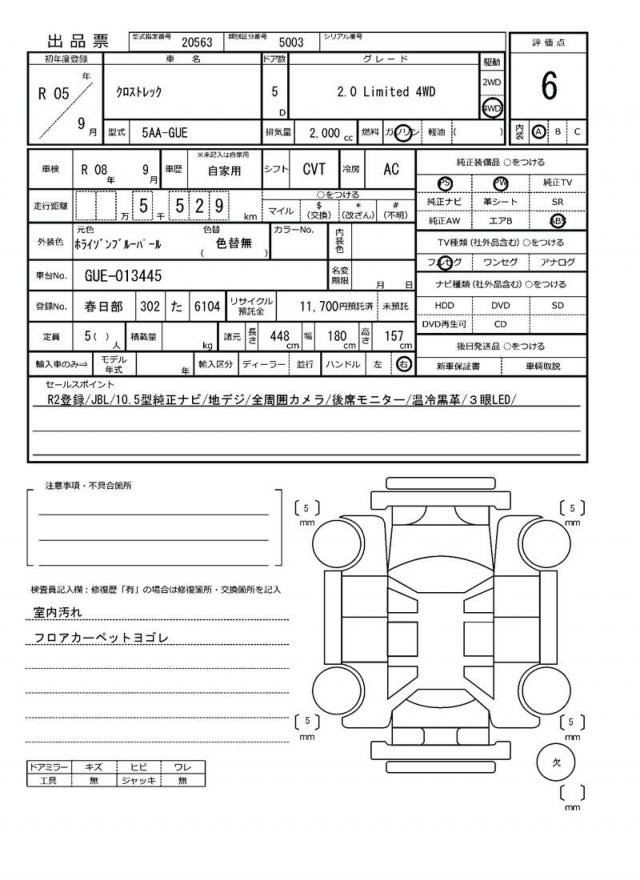 出品票 型式指定番号 20563 類別区分番号 5003 シリアル番号
評価点
6
内装 A B C
初年度登録 車名 ドア数 グレード 駆動
R 05 年 9 月 クロストレック 5 D 2.0 Limited 4WD 2WD 4WD
型式 5AA-GUE 排気量 2,000 cc 燃料 ガソリン 軽油 ( )
車検 R 08 年 9 月 車歴 ※未記入は自家用 自家用 シフト CVT 冷房 AC
走行距離 万 5 千 5 2 9 km ○をつける マイル $(交換) *(改ざん) #(不明)
外装色 元色 ﾎﾗｲｿﾞﾝﾌﾞﾙｰﾊﾟｰﾙ 色替 ( 色替無 ) カラーNo. 内装色
車台No. GUE-013445 名変期限 月 日
登録No. 春日部 302 た 6104 リサイクル預託金 11,700円預託済 未預託
定員 5( ) 人 積載量 kg 諸元 長さ 448 cm 幅 180 cm 高さ 157 cm
輸入車のみ⇒ モデル年式 年 輸入区分 ディーラー 並行 ハンドル 左 右
純正装備品 ○をつける
PS PW 純正TV
純正ナビ 革シート SR
純正AW エアB ABS
TV種類 (社外品含む) ○をつける
フルセグ ワンセグ アナログ
ナビ種類 (社外品含む) ○をつける
HDD DVD SD
DVD再生可 CD
後日発送品 ○をつける
新車保証書 車輌取説
セールスポイント
R2登録/JBL/10.5型純正ナビ/地デジ/全周囲カメラ/後席モニター/温冷黒革/3眼LED/
注意事項・不具合箇所
検査員記入欄：修復歴「有」の場合は修復箇所・交換箇所を記入
室内汚れ
フロアカーペットヨゴレ
ドアミラー キズ ヒビ ワレ
工具 無 ジャッキ 無
〔 5 〕 mm
〔 5 〕 mm
〔 5 〕 mm
〔 5 〕 mm
欠
〔 〕 mm